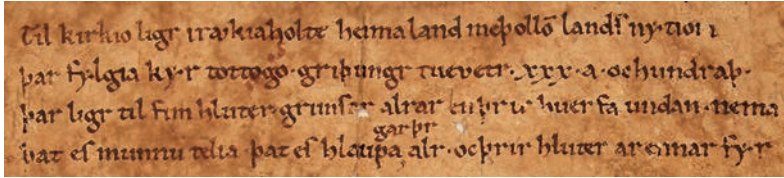 Til kirkio ligr i rækiaholte heimaland meþ ollō landſ nytiom
þar fylgia kyr tottogo · griþungr tuevetr · xxx · a · oc hundraþ ·
þar ligr til fim hluter grimsar alrar en þrir huerfa undan · nema
þat es munnu telia þat es hlaupa garþr alr · oc þrir hluter arennar fyr